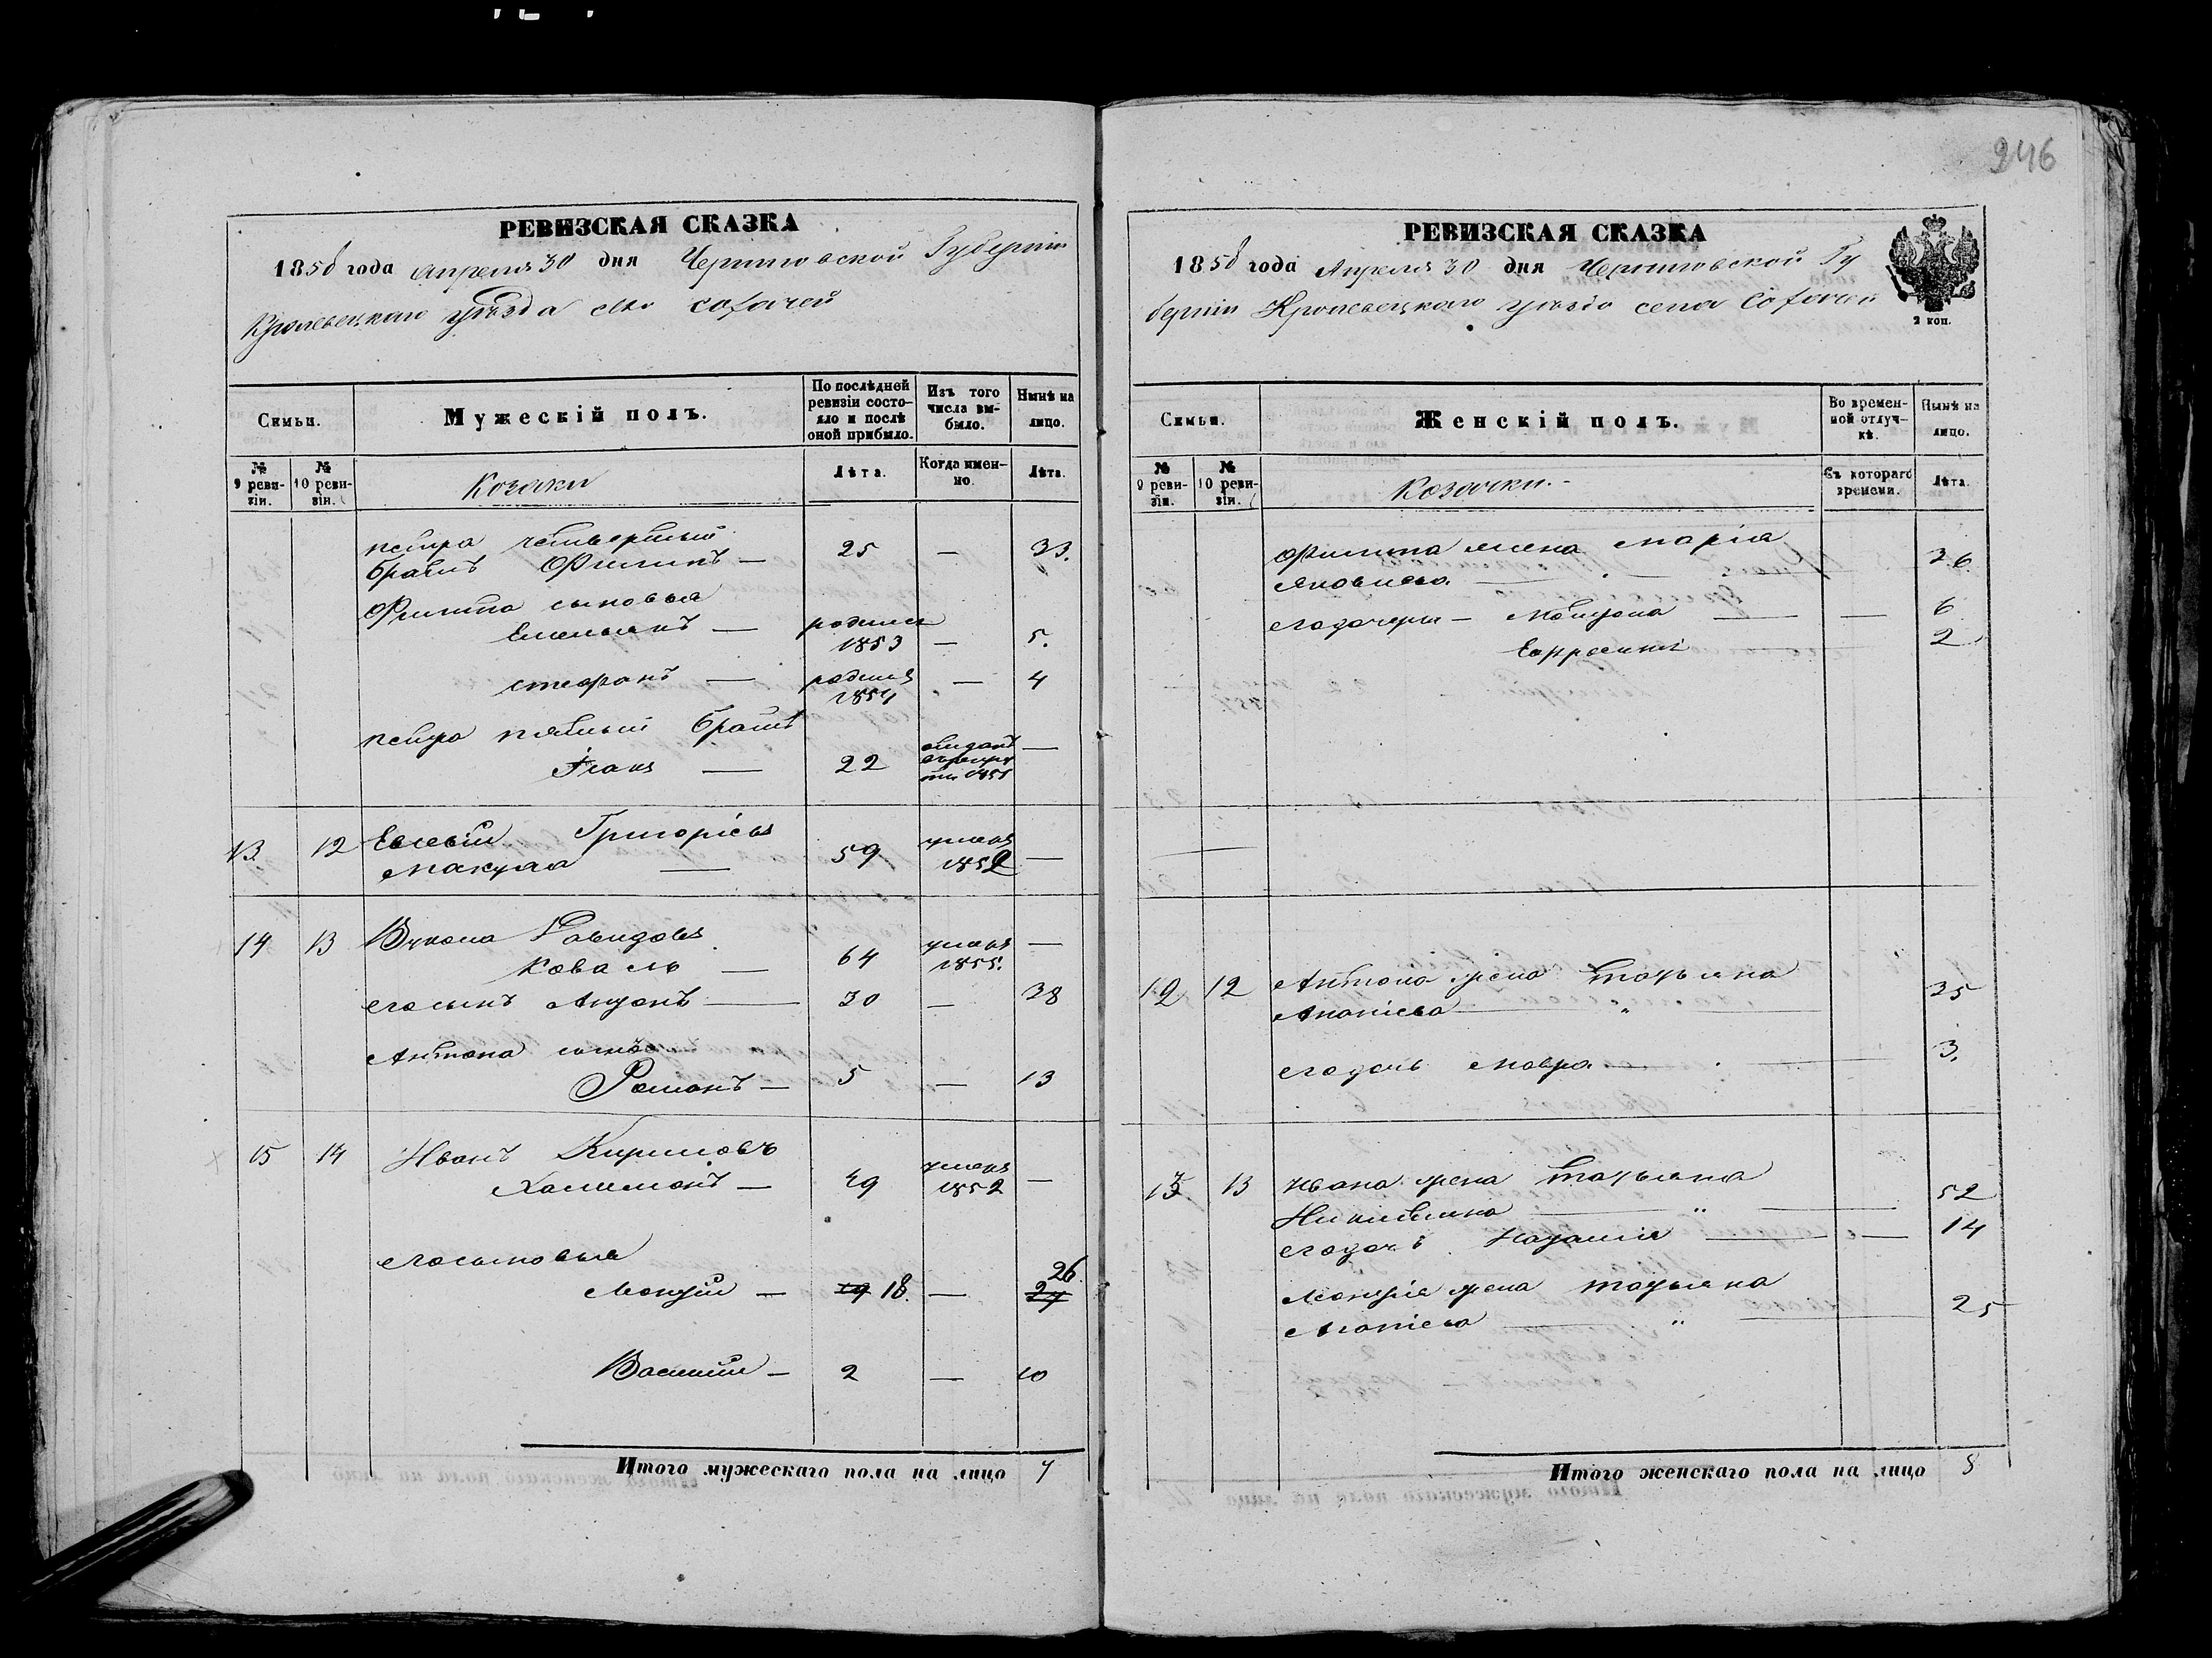 246
РЕВИЗСКАЯ СКАЗКА
1858 года Апреля 30 дня Черниговской Губернiи
Кролевецкаго уѣзда села
Семьи.
Мужескiй полъ.
По послѣдней ревизiи состояло и послѣ оной прибыло.
Изъ того числа выбыло.
Нынѣ на лицо.
№ 9 ревизiи.
№ 10 ревизiи.
Козаки
Лѣта.
Когда именно.
Лѣта.
Петра четвертый
братъ Филипъ — 25 — 33.
Филипа сыновья
Емельянъ — родился 1853 — 5.
Стефанъ — родился 1854 — 4
Петра пятый братъ
22 —
13 12 Евсевiй Григорiевъ
59 умеръ 1852 —
14 13 Вукола Давидовъ
Коваль — 64 умеръ 1855. —
его сынъ Антонъ — 30 — 38
Антона сынъ
Романъ — 5 — 13
15 14 Иванъ Кириловъ
Халимонъ — 49 умеръ 1852 —
его сыновья
19 18. — 26. 27
Василiй — 2 — 10
Итого мужескаго пола на лицо 7
РЕВИЗСКАЯ СКАЗКА
1858 года Апреля 30 дня Черниговской Гу
бернiи Кролевецкаго уѣзда села
2 коп.
Семьи.
Женскiй полъ.
Во временной отлучкѣ.
Нынѣ на лицо.
№ 9 ревизiи.
№ 10 ревизiи.
Козачки.
Съ котораго времени.
Лѣта.
Филипа жена Марiя
Яковлева — 26.
его дочери — Мотрона — — 6
Ефросинiя 2
12 12 Антона жена Татьяна
Ананiева — " — 35
его дочь Мавра — 3.
13 13 Ивана жена Татьяна
— " — 52
его дочь Наталiя — — 14
жена Татьяна
— " — 25
Итого женскаго пола на лицо 8